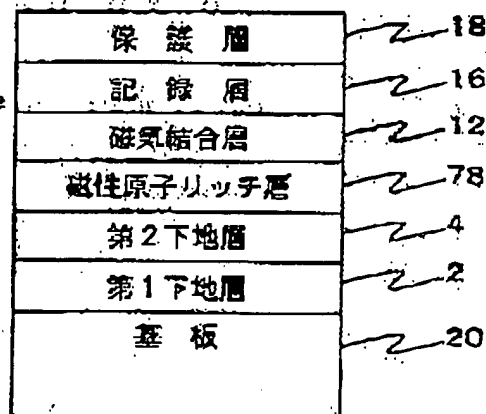 保護層 18
記録層 16
磁気結合層 12
磁性原子リッチ層 78
第2下地層 4
第1下地層 2
基板 20